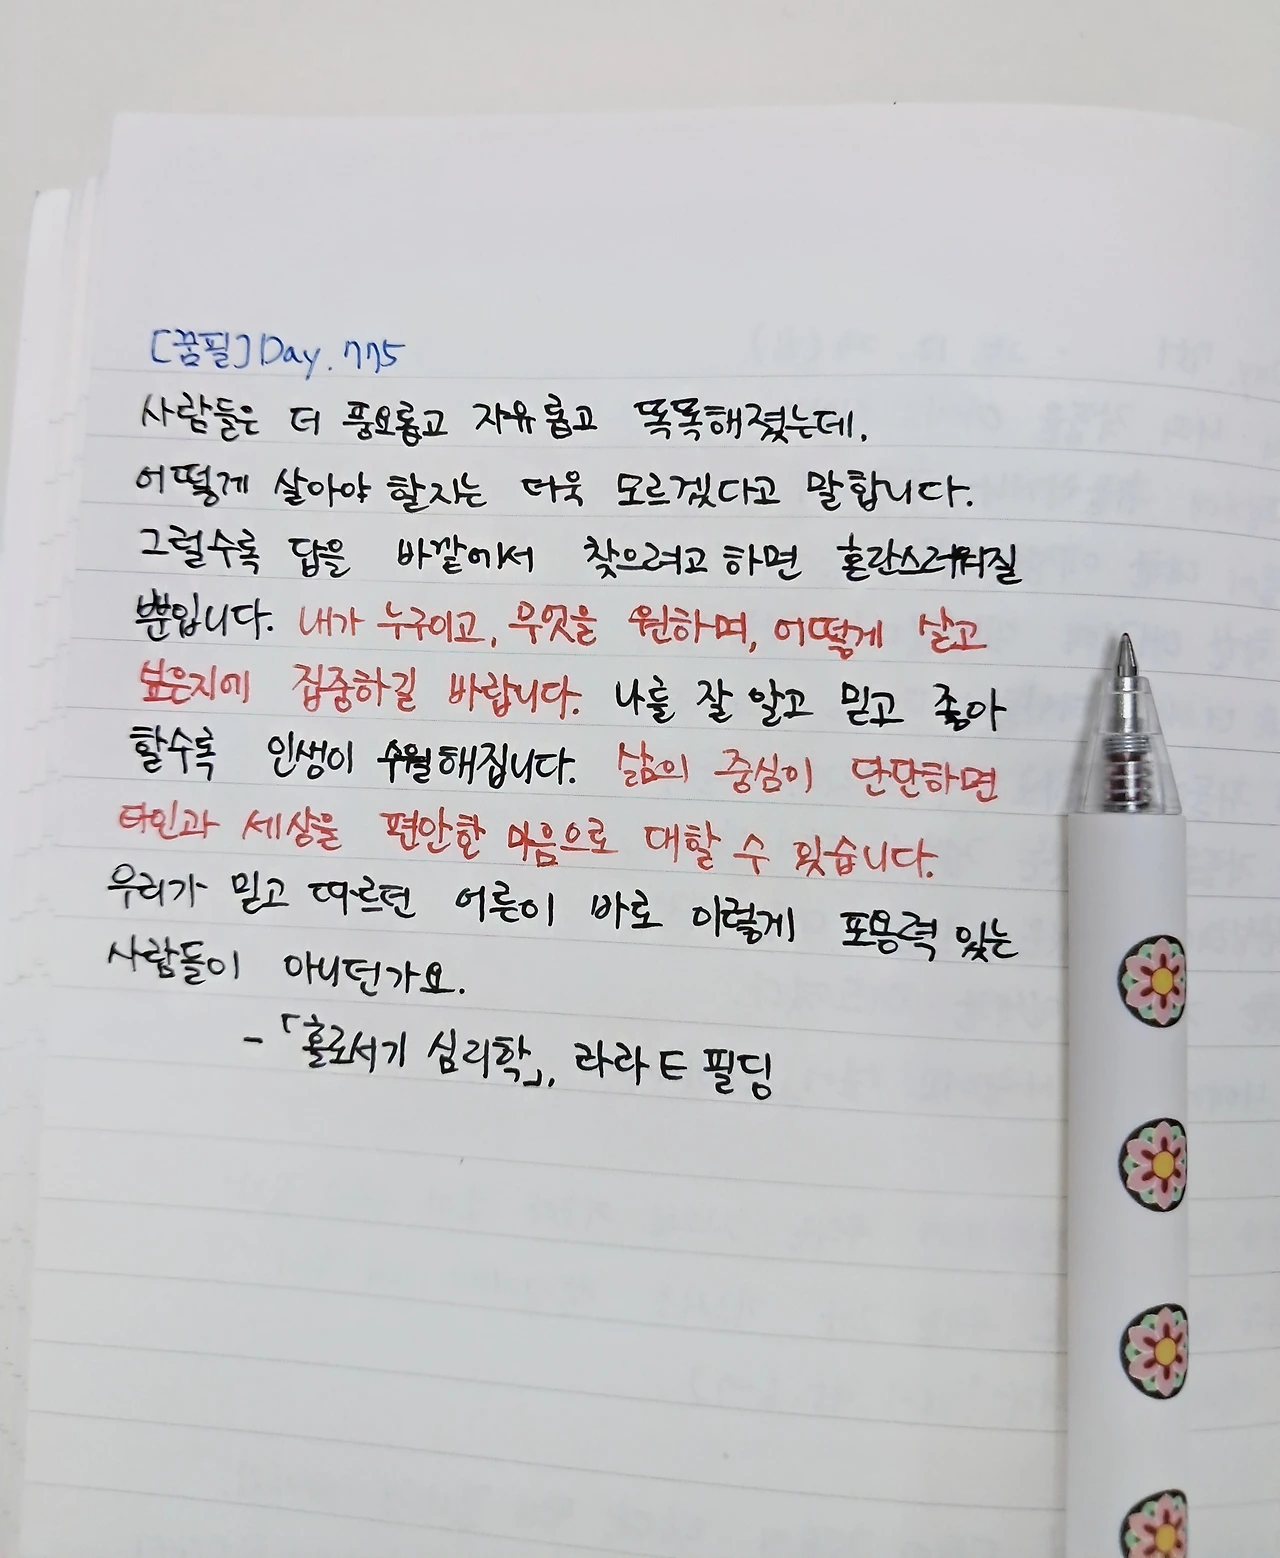 [꿈필] Day. 775
사람들은 더 풍요롭고 자유롭고 똑똑해졌는데,
어떻게 살아야 할지는 더욱 모르겠다고 말합니다.
그럴수록 답을 바깥에서 찾으려고 하면 혼란스러워질
뿐입니다. 내가 누구이고, 무엇을 원하며, 어떻게 살고
싶은지에 집중하길 바랍니다. 나를 잘 알고 믿고 좋아
할수록 인생이 수월해집니다. 삶의 중심이 단단하면
타인과 세상을 편안한 마음으로 대할 수 있습니다.
우리가 믿고 따르던 어른이 바로 이렇게 포용력 있는
사람들이 아니던가요.
-「홀로서기 심리학」, 라라 E 필딩